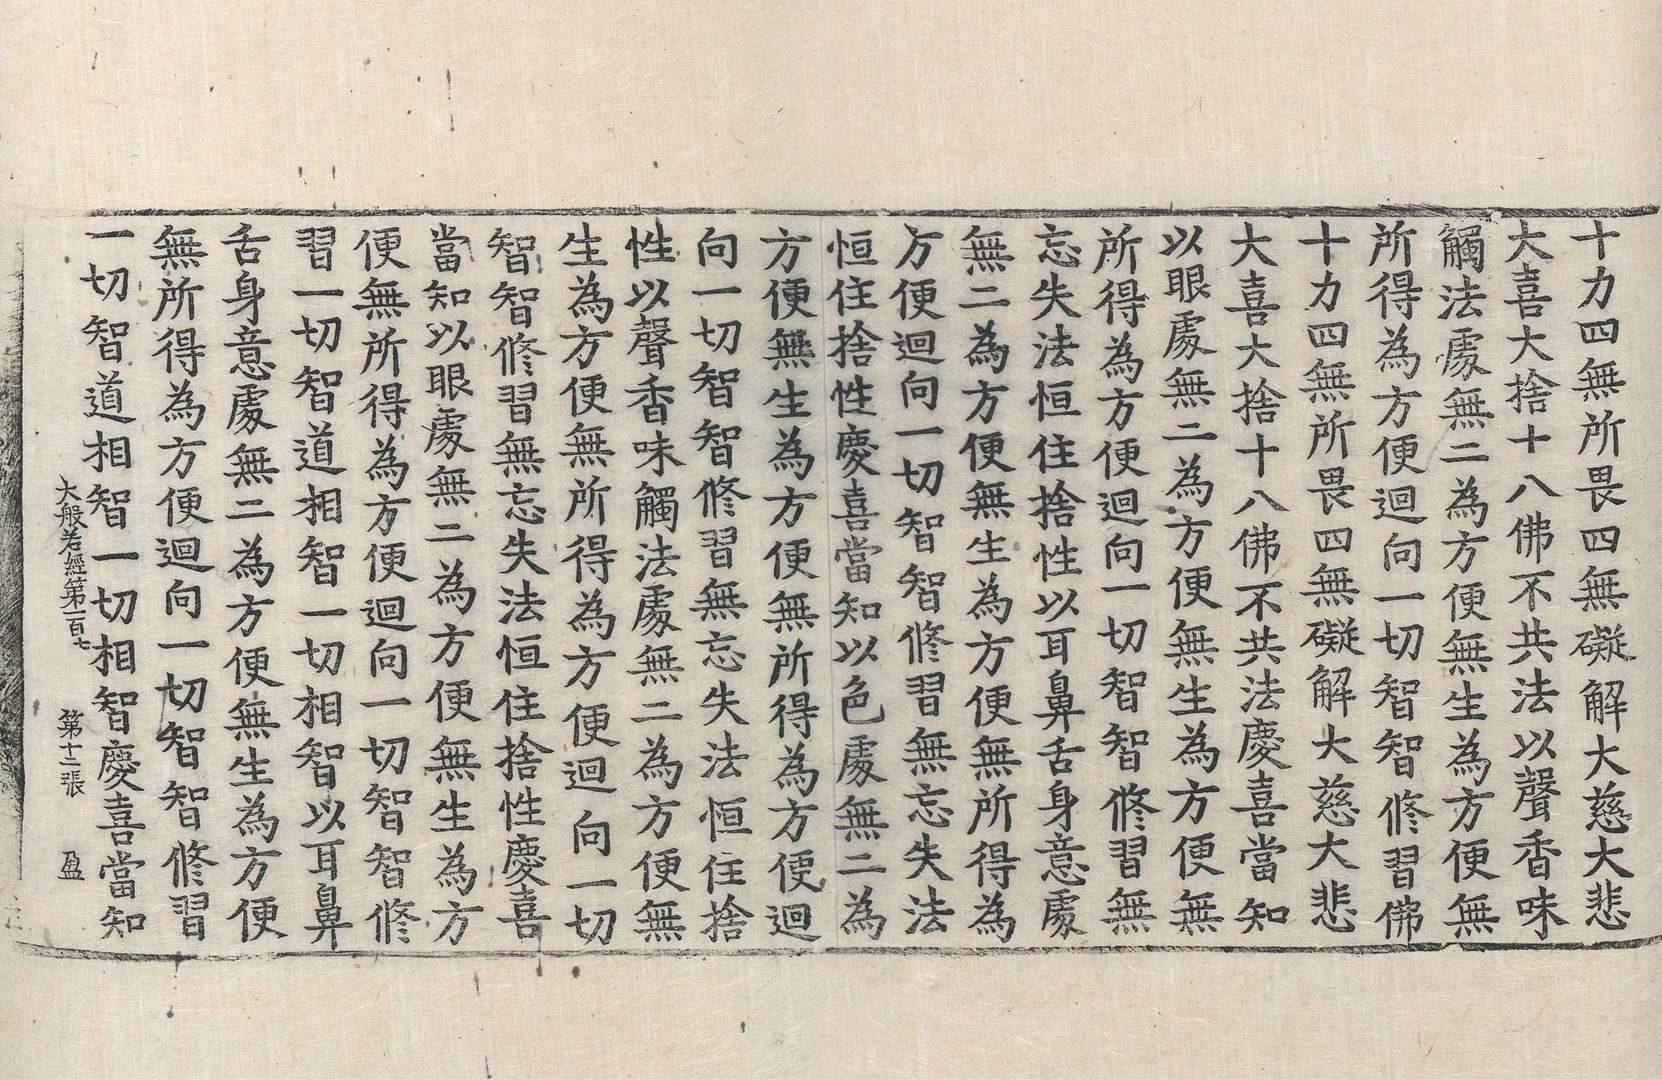 十力四無所畏四無礙解大慈大悲
大喜大捨十八佛不共法以聲香味
觸法處無二為方便無生為方便無
所得為方便迴向一切智智修習佛
十力四無所畏四無礙解大慈大悲
大喜大捨十八佛不共法慶喜當知
以眼處無二為方便無生為方便無
所得為方便迴向一切智智修習無
忘失法恒住捨性以耳鼻舌身意處
無二為方便無生為方便無所得為
方便迴向一切智智修習無忘失法
恒住捨性慶喜當知以色處無二為
方便無生為方便無所得為方便迴
向一切智智修習無忘失法恒住捨
性以聲香味觸法處無二為方便無
生為方便無所得為方便迴向一切
智智修習無忘失法恒住捨性慶喜
當知以眼處無二為方便無生為方
便無所得為方便迴向一切智智修
習一切智道相智一切相智以耳鼻
舌身意處無二為方便無生為方便
無所得為方便迴向一切智智修習
一切智道相智一切相智慶喜當知
大般若經第一百七 第十二張 盈